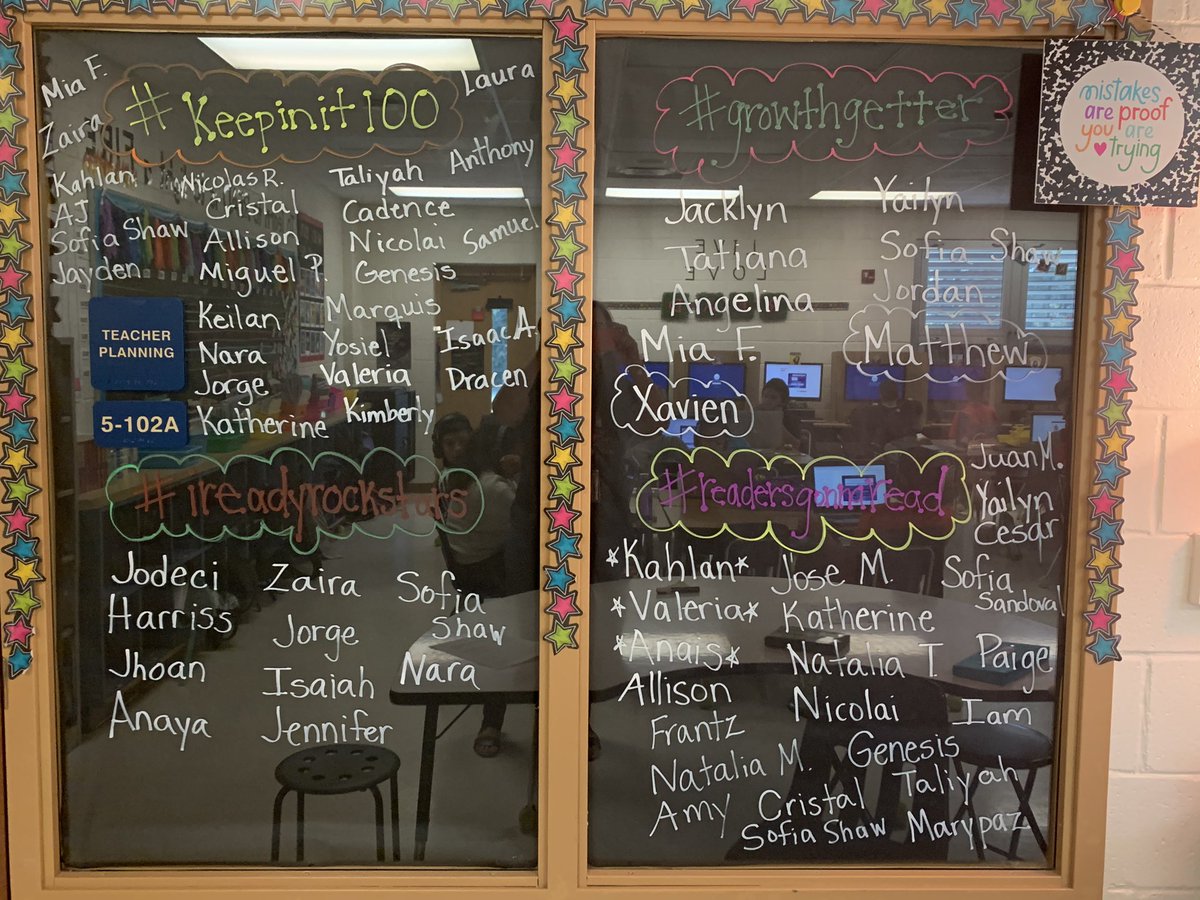 #Keepinit100
Mia F.
Laura
Zaira
Anthony
Kahlan Nicolas R. Taliyah
AJ Cristal Cadence
Sofia Shaw Allison Nicolai Samuel
Jayden Miguel P. Genesis
Keilan Marquis
Nara Yosiel Isaac A.
Jorge Valeria Dracen
Katherine Kimberly
TEACHER
PLANNING
5-102A
#growthgetter
Jacklyn Yailyn
Tatiana Sofia Shaw
Angelina Jordan
Mia F. Matthew
Xavien
mistakes
are proof
you are
trying
#ireadyrockstars
Jodeci Zaira Sofia
Shaw
Harriss Jorge
Jhoan Isaiah Nara
Anaya Jennifer
#readersgonnaread
Juan M.
Yailyn
Cesar
*Kahlan* Jose M. Sofia
Sandoval
*Valeria* Katherine
*Anais* Natalia T. Paige
Allison Nicolai Iam
Frantz
Natalia M. Genesis
Amy Cristal Taliyah
Sofia Shaw Marypaz